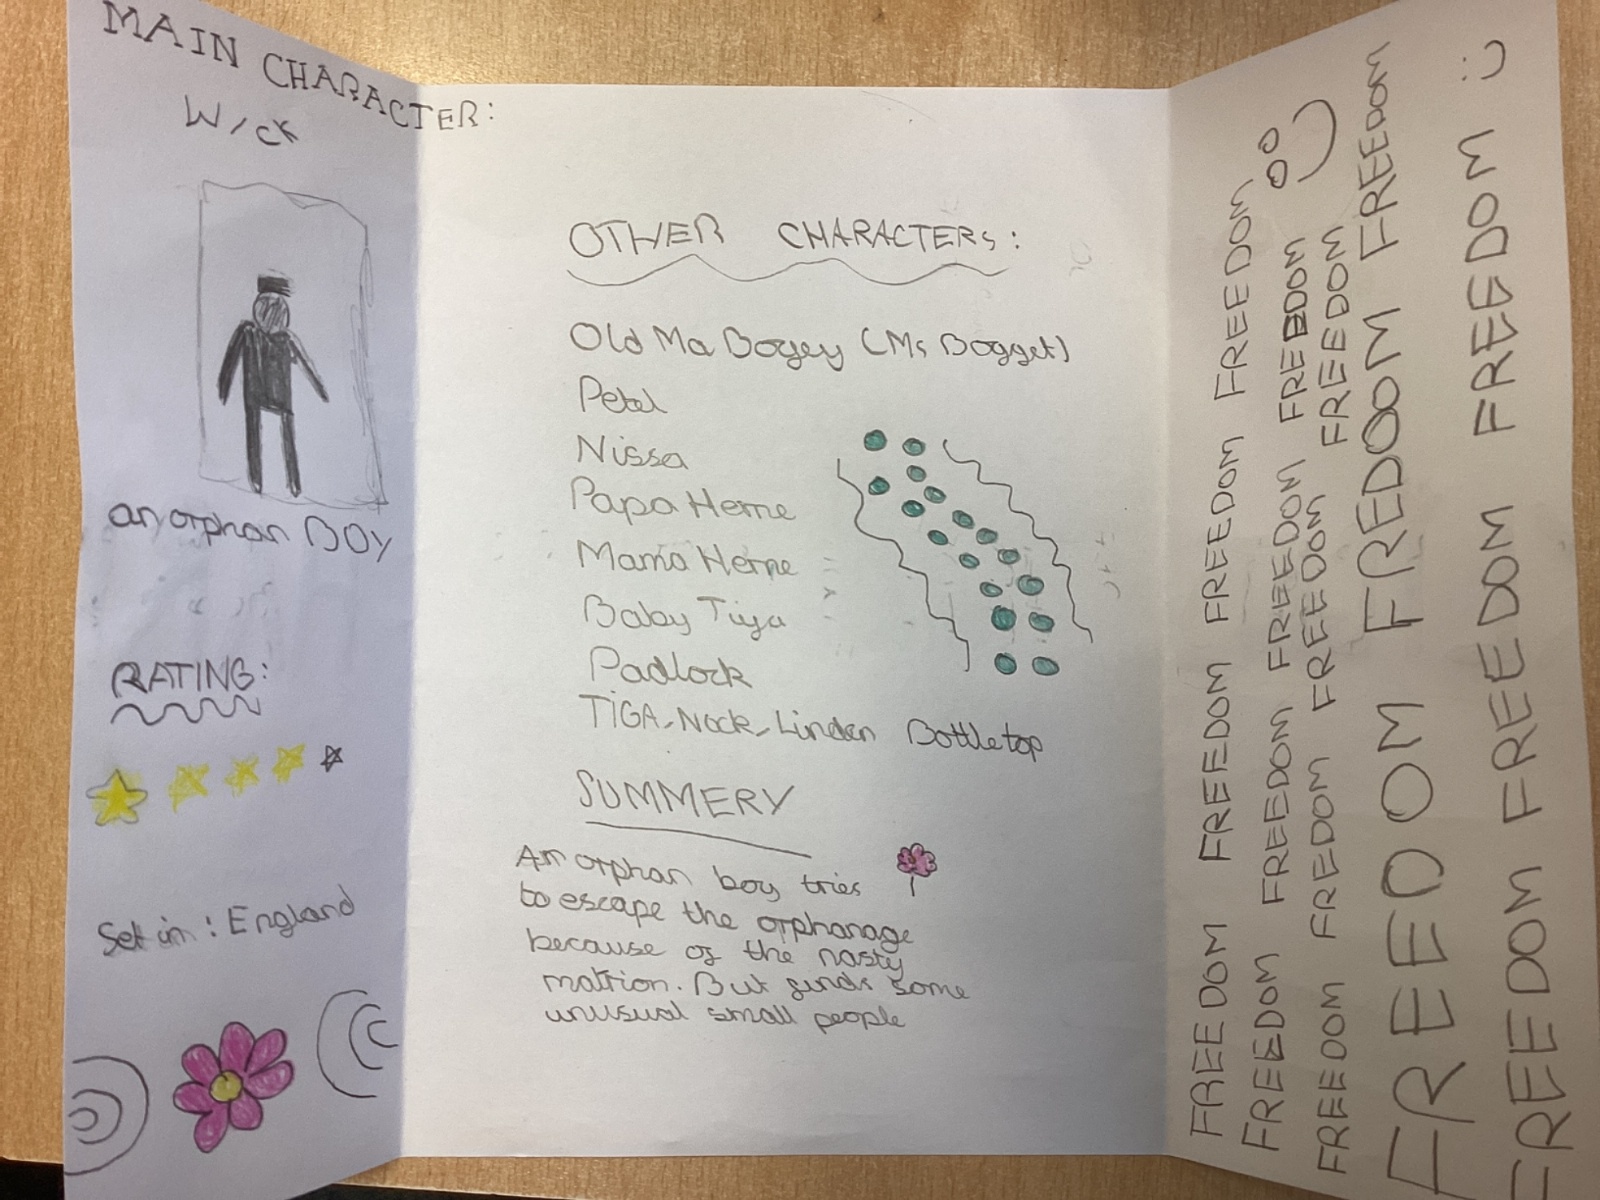 MAIN CHARACTER:
Wick
an orphan BOY
RATING:
Set in: England
OTHER CHARACTERS:
Old Ma Bogey (Ms Bogget)
Petal
Nissa
Papa Herne
Mama Herne
Baby Tiya
Padlock
TIGA-Nock-Linden Bottletop
SUMMERY
An orphan boy tries
to escape the orphanage
because of the nasty
matrion. But finds some
unusual small people
FREEDOM FREEDOM FREEDOM FREEDOM FREEDOM
FREEDOM FREEDOM FREEDOM FREEDOM FREEDOM
FREEDOM FREEDOM FREEDOM FREEDOM FREEDOM
FREEDOM FREEDOM FREEDOM
FREEDOM FREEDOM FREEDOM FREEDOM FREEDOM :)